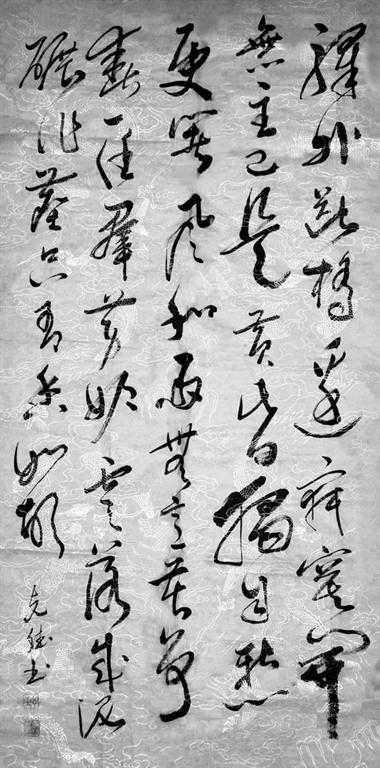 驛外斷橋邊寂寞開
無主已是黃昏獨自愁
更著風和雨無意苦爭
春一任羣芳妒零落成泥
碾作塵只有香如故
克書